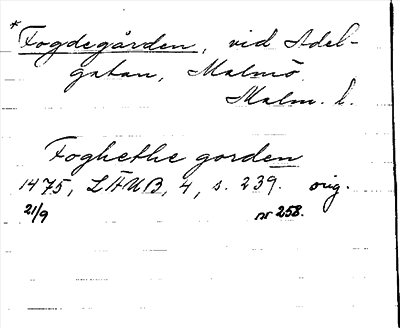 * Fogdegården, vid Adel-
gatan, Malmö
Malm. l.
Foghethe gorden
1475, LÄUB, 4, s. 239. orig.
21/9 nr 258.